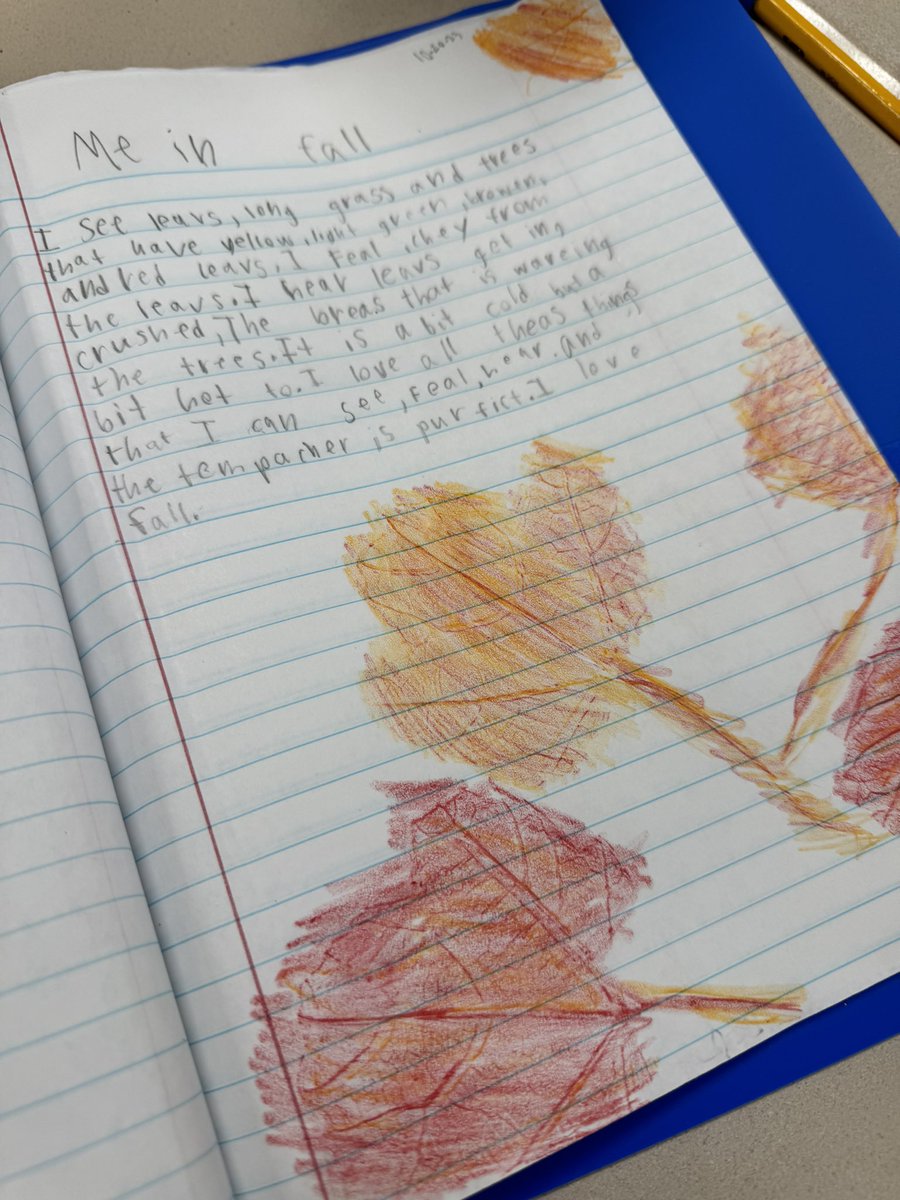 Me in fall
I see leavs, long grass and trees
that have yellow, light green, browen,
and red leavs. I feal ,chey from
the leavs. I hear leavs geting
crushed, The breas that is waveing
the trees. It is a bit cold but a
bit hot to. I love all theas things
that I can see, feal, hear. and
the tempacher is purfict. I love
fall.